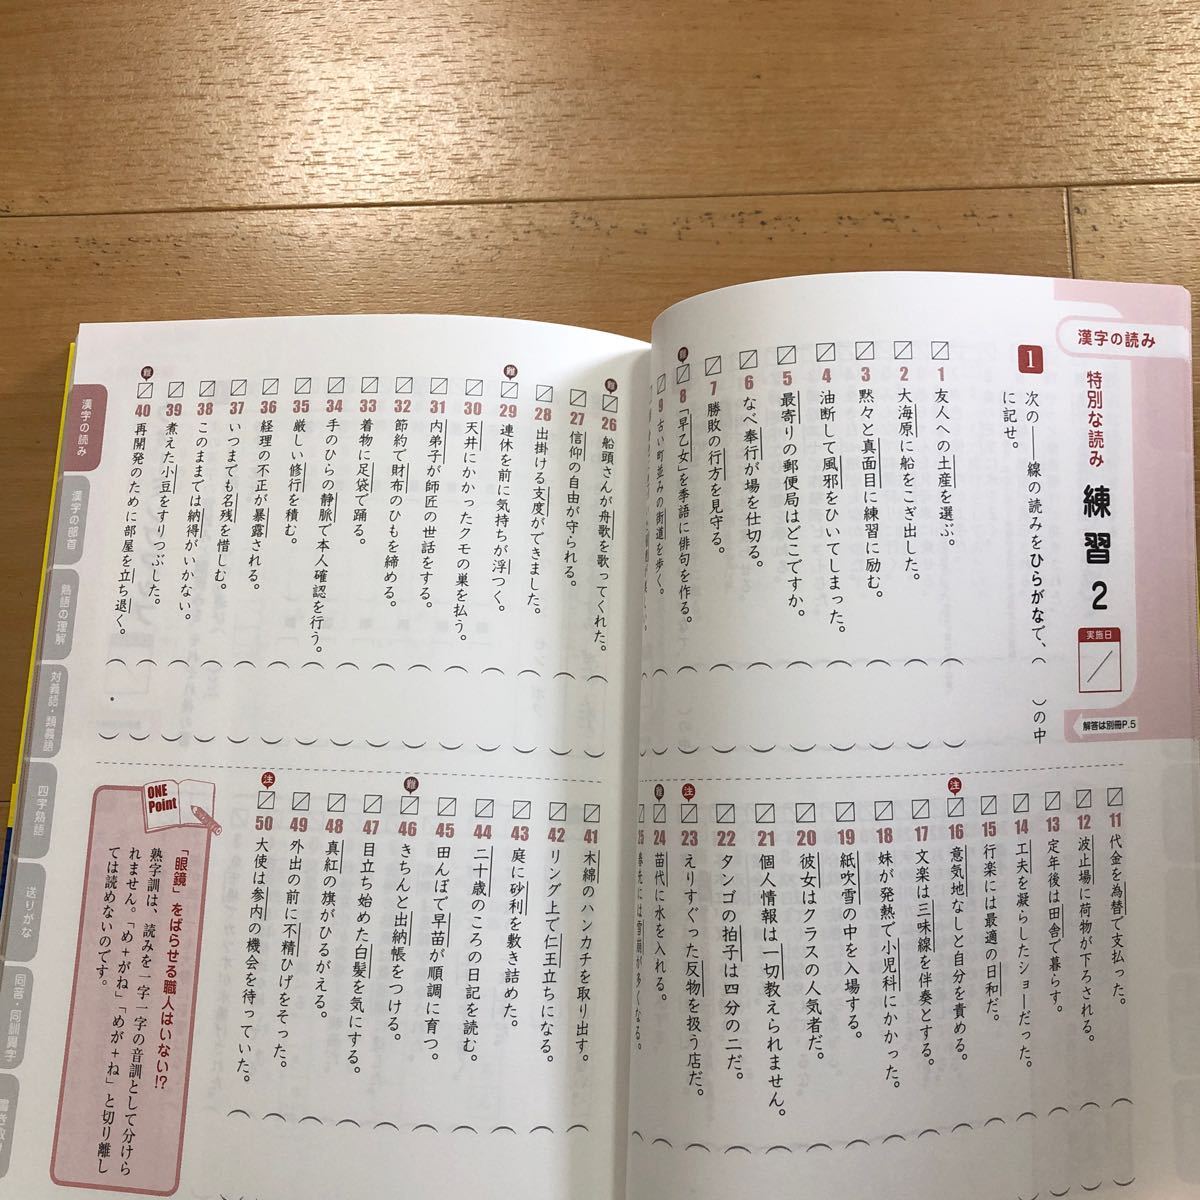 漢字の読み
特別な読み 練習2
実施日
解答は別冊P.5
1 次の――線の読みをひらがなで、( )の中
に記せ。
1 友人への土産を選ぶ。
2 大海原に船をこぎ出した。
3 黙々と真面目に練習に励む。
4 油断して風邪をひいてしまった。
5 最寄りの郵便局はどこですか。
6 なべ奉行が場を仕切る。
7 勝敗の行方を見守る。
難 8 「早乙女」を季語に俳句を作る。
9 古い町並みの街道を歩く。
11 代金を為替で支払った。
12 波止場に荷物が下ろされる。
13 定年後は田舎で暮らす。
14 工夫を凝らしたショーだった。
15 行楽には最適の日和だ。
注 16 意気地なしと自分を責める。
17 文楽は三味線を伴奏とする。
18 妹が発熱で小児科にかかった。
19 紙吹雪の中を入場する。
20 彼女はクラスの人気者だ。
21 個人情報は一切教えられません。
22 タンゴの拍子は四分の二だ。
注 23 えりすぐった反物を扱う店だ。
難 24 苗代に水を入れる。
25 春先には雪崩が多くなる。
難 26 船頭さんが舟歌を歌ってくれた。
27 信仰の自由が守られる。
28 出掛ける支度ができました。
難 29 連休を前に気持ちが浮つく。
30 天井にかかったクモの巣を払う。
31 内弟子が師匠の世話をする。
32 節約で財布のひもを締める。
33 着物に足袋で踊る。
34 手のひらの静脈で本人確認を行う。
35 厳しい修行を積む。
36 経理の不正が暴露される。
37 いつまでも名残を惜しむ。
38 このままでは納得がいかない。
39 煮えた小豆をすりつぶした。
難 40 再開発のために部屋を立ち退く。
41 木綿のハンカチを取り出す。
42 リング上で仁王立ちになる。
43 庭に砂利を敷き詰めた。
44 二十歳のころの日記を読む。
45 田んぼで早苗が順調に育つ。
難 46 きちんと出納帳をつける。
47 目立ち始めた白髪を気にする。
48 真紅の旗がひるがえる。
49 外出の前に不精ひげをそった。
注 50 大使は参内の機会を待っていた。
ONE
Point
「眼鏡」をばらせる職人はいない!?
熟字訓は、読みを一字一字の音訓として分けら
れません。「め+がね」「めが+ね」と切り離し
ては読めないのです。
漢字の読み
漢字の部首
熟語の理解
対義語・類義語
四字熟語
送りがな
同音・同訓異字